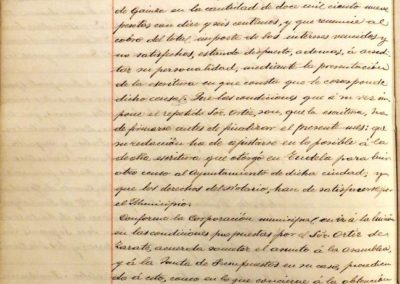 de Gainza en la cantidad de doce mil, ciento nueve
pesetas con diez y seis centimos, y que renuncie al
cobro del total importe de los intereses vencidos y
no satisfechos, estando dispuesto, ademas, á acredi-
tar su personalidad, mediante la presentación
de la escritura en que consta que le corresponde
dicho censo. Que las condiciones que á su vez im-
pone el repetido Sor. Ortiz, son, que la escritura, ha
de firmarse antes de finalizar el presente mes; que
su redacción ha de ajustarse en lo posible á la
de otra escritura que otorgó en Tudela para
otro censo al Ayuntamiento de dicha ciudad; y
que los derechos del Notario, han de satisfacerse por
el Municipio.
Conforme la Corporación municipal, con
en las condiciones propuestas por el Sor. Ortiz de
Zarate, acuerda someter el asunto á la asamblea,
y á la Junta de Presupuestos en su caso, procedien-
do á esto, como en lo que concierne á la obtención